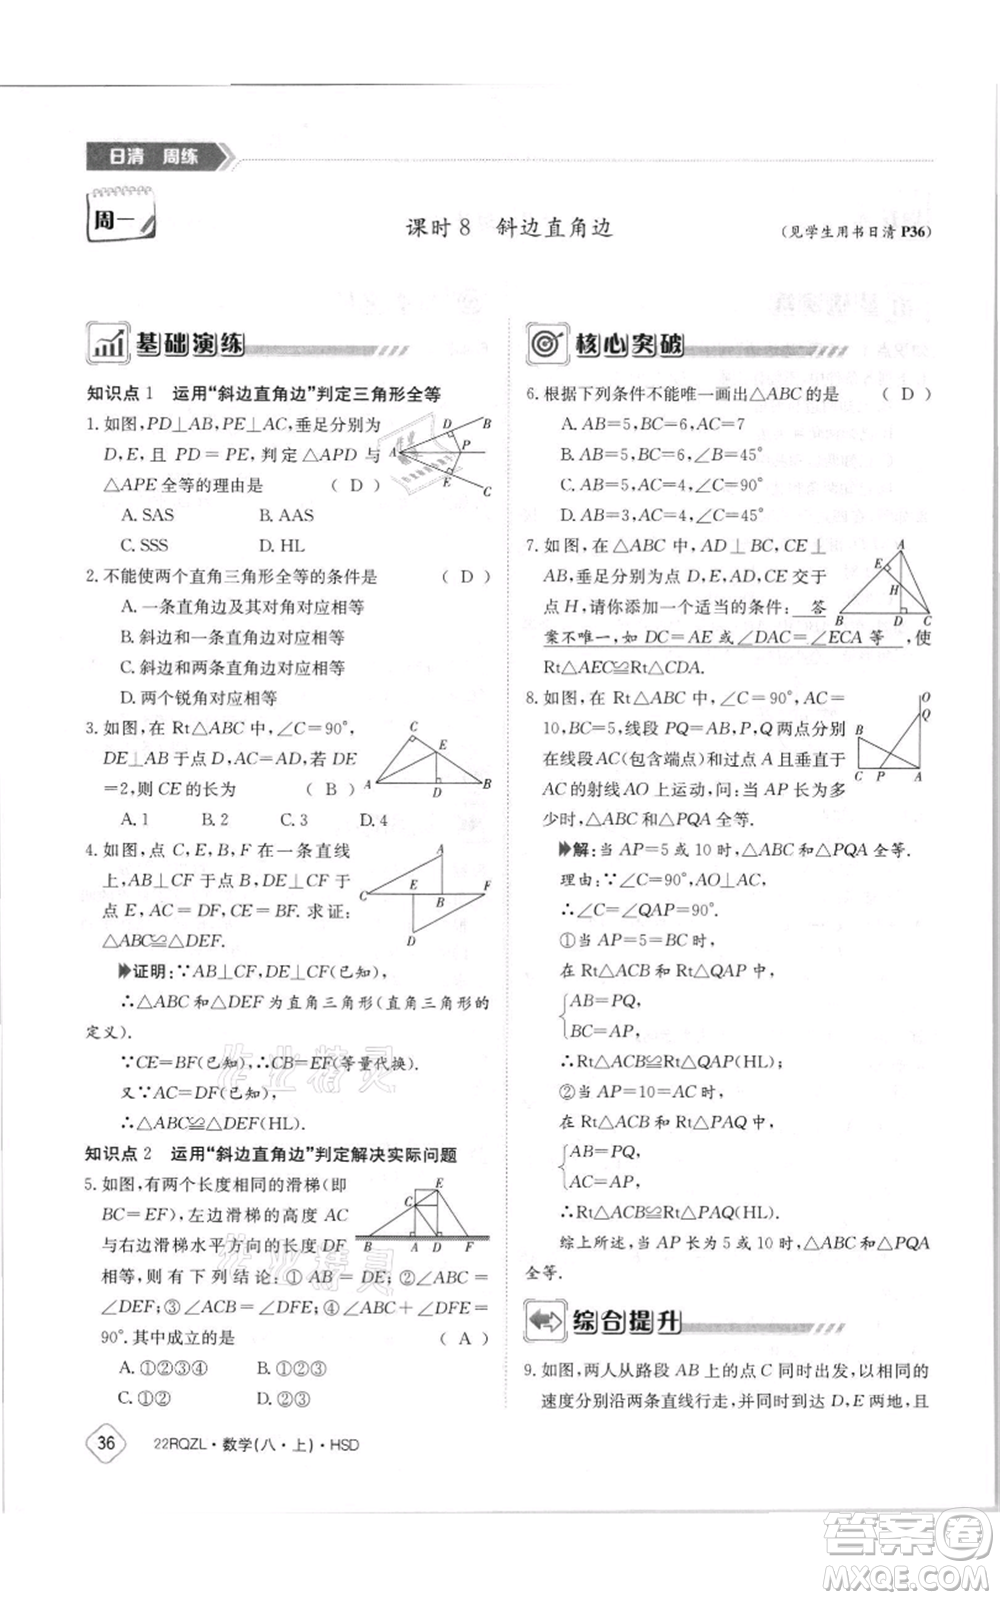 日清 周练
周一
课时 8 斜边直角边
(见学生用书日清 P36)
基础演练
知识点 1 运用“斜边直角边”判定三角形全等
1. 如图,PD⊥AB,PE⊥AC,垂足分别为
D,E,且 PD=PE,判定△APD 与
△APE 全等的理由是 ( D )
A. SAS B. AAS
C. SSS D. HL
2. 不能使两个直角三角形全等的条件是 ( D )
A. 一条直角边及其对角对应相等
B. 斜边和一条直角边对应相等
C. 斜边和两条直角边对应相等
D. 两个锐角对应相等
3. 如图,在 Rt△ABC 中,∠C=90°,
DE⊥AB 于点 D,AC=AD,若 DE
=2,则 CE 的长为 ( B )
A. 1 B. 2 C. 3 D. 4
4. 如图,点 C,E,B,F 在一条直线
上,AB⊥CF 于点 B,DE⊥CF 于
点 E,AC=DF,CE=BF. 求证:
△ABC≌△DEF.
证明:∵AB⊥CF,DE⊥CF(已知),
∴△ABC 和△DEF 为直角三角形(直角三角形的
定义).
∵CE=BF(已知),∴CB=EF(等量代换).
又∵AC=DF(已知),
∴△ABC≌△DEF(HL).
知识点 2 运用“斜边直角边”判定解决实际问题
5. 如图,有两个长度相同的滑梯(即
BC=EF),左边滑梯的高度 AC
与右边滑梯水平方向的长度 DF
相等,有下列结论:① AB=DE;②∠ABC=
∠DEF;③∠ACB=∠DFE;④∠ABC+∠DFE=
90°.其中成立的是 ( A )
A. ①②③④ B. ①②③
C. ①② D. ②③
核心突破
6. 根据下列条件不能唯一画出△ABC的是 ( D )
A. AB=5,BC=6,AC=7
B. AB=5,BC=6,∠B=45°
C. AB=5,AC=4,∠C=90°
D. AB=3,AC=4,∠C=45°
7. 如图,在△ABC 中,AD⊥BC,CE⊥
AB,垂足分别为 D,E,AD,CE 交于
点 H,请你添加一个适当的条件: 答
案不唯一,如 DC=AE 或∠DAC=∠ECA 等 ,使
Rt△AEC≌Rt△CDA.
8. 如图,在 Rt△ABC 中,∠C=90°,AC=
10,BC=5,线段 PQ=AB,P,Q 两点分别
在线段 AC(包含端点)和过点 A 且垂直于
AC的射线AO上运动,问:当 AP 长为多
少时,△ABC 和△PQA 全等.
解:当 AP=5 或 10 时,△ABC和△PQA 全等.
理由:∵∠C=90°,AO⊥AC,
∴∠C=∠QAP=90°.
①当 AP=5=BC 时,
在 Rt△ACB 和 Rt△QAP 中,
AB=PQ,
BC=AP,
∴Rt△ACB≌Rt△QAP(HL);
②当 AP=10=AC 时,
在 Rt△ACB 和 Rt△PAQ 中,
AB=PQ,
AC=AP,
∴Rt△ACB≌Rt△PAQ(HL).
综上所述,当 AP 长为 5 或 10 时,△ABC 和△PQA
全等.
综合提升
9. 如图,两人从路段 AB 上的点 C 同时出发,以相同的
速度分别沿两条直线行走,并同时到达 D,E 两地,且
36 22RQZL·数学(八·上)·HSD
作业精灵
作业精灵
答案卷
MXQE.COM